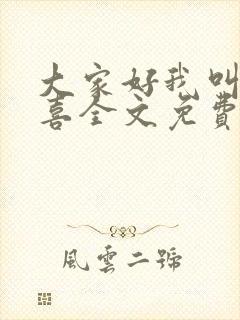 大家好我叫
喜全文免費
風雲二號